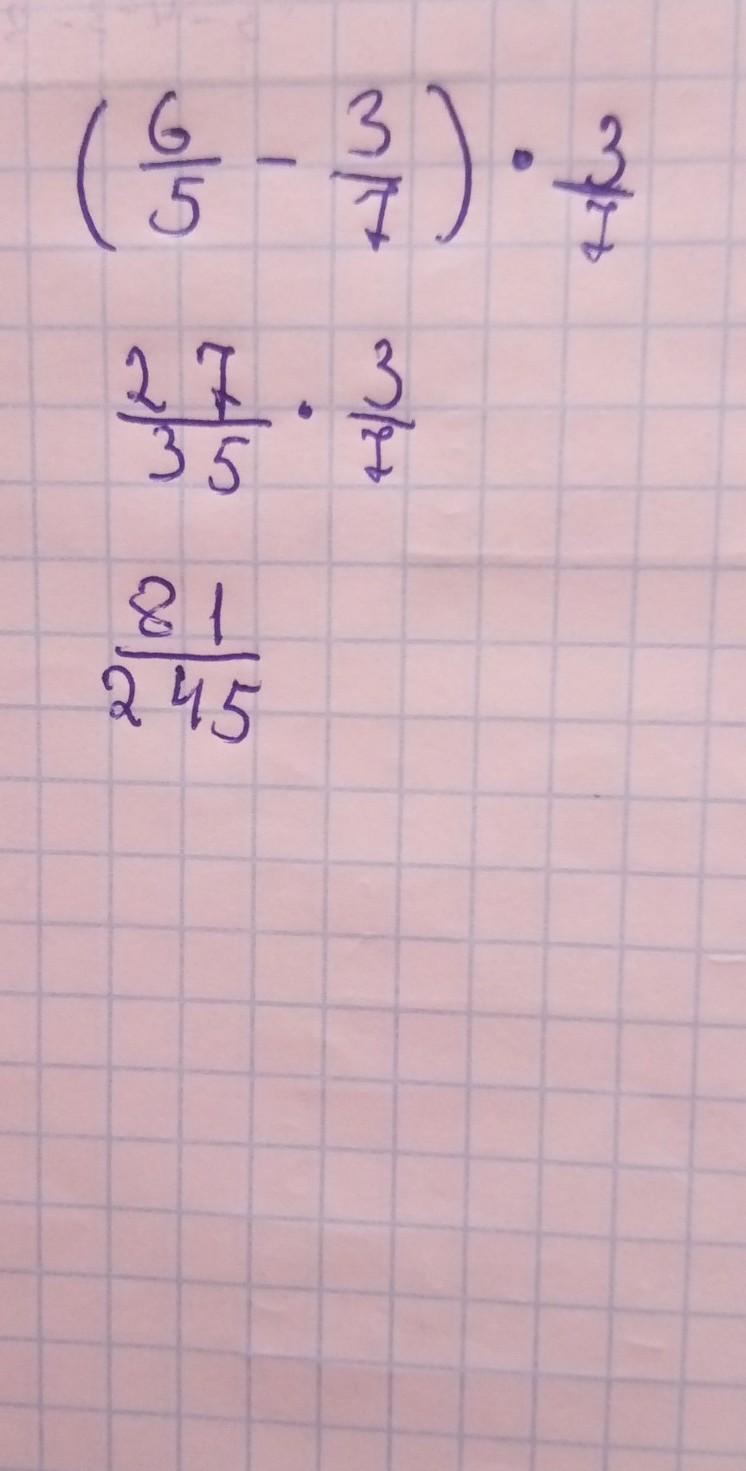 (6/5 - 3/7) · 3/7
27/35 · 3/7
81/245